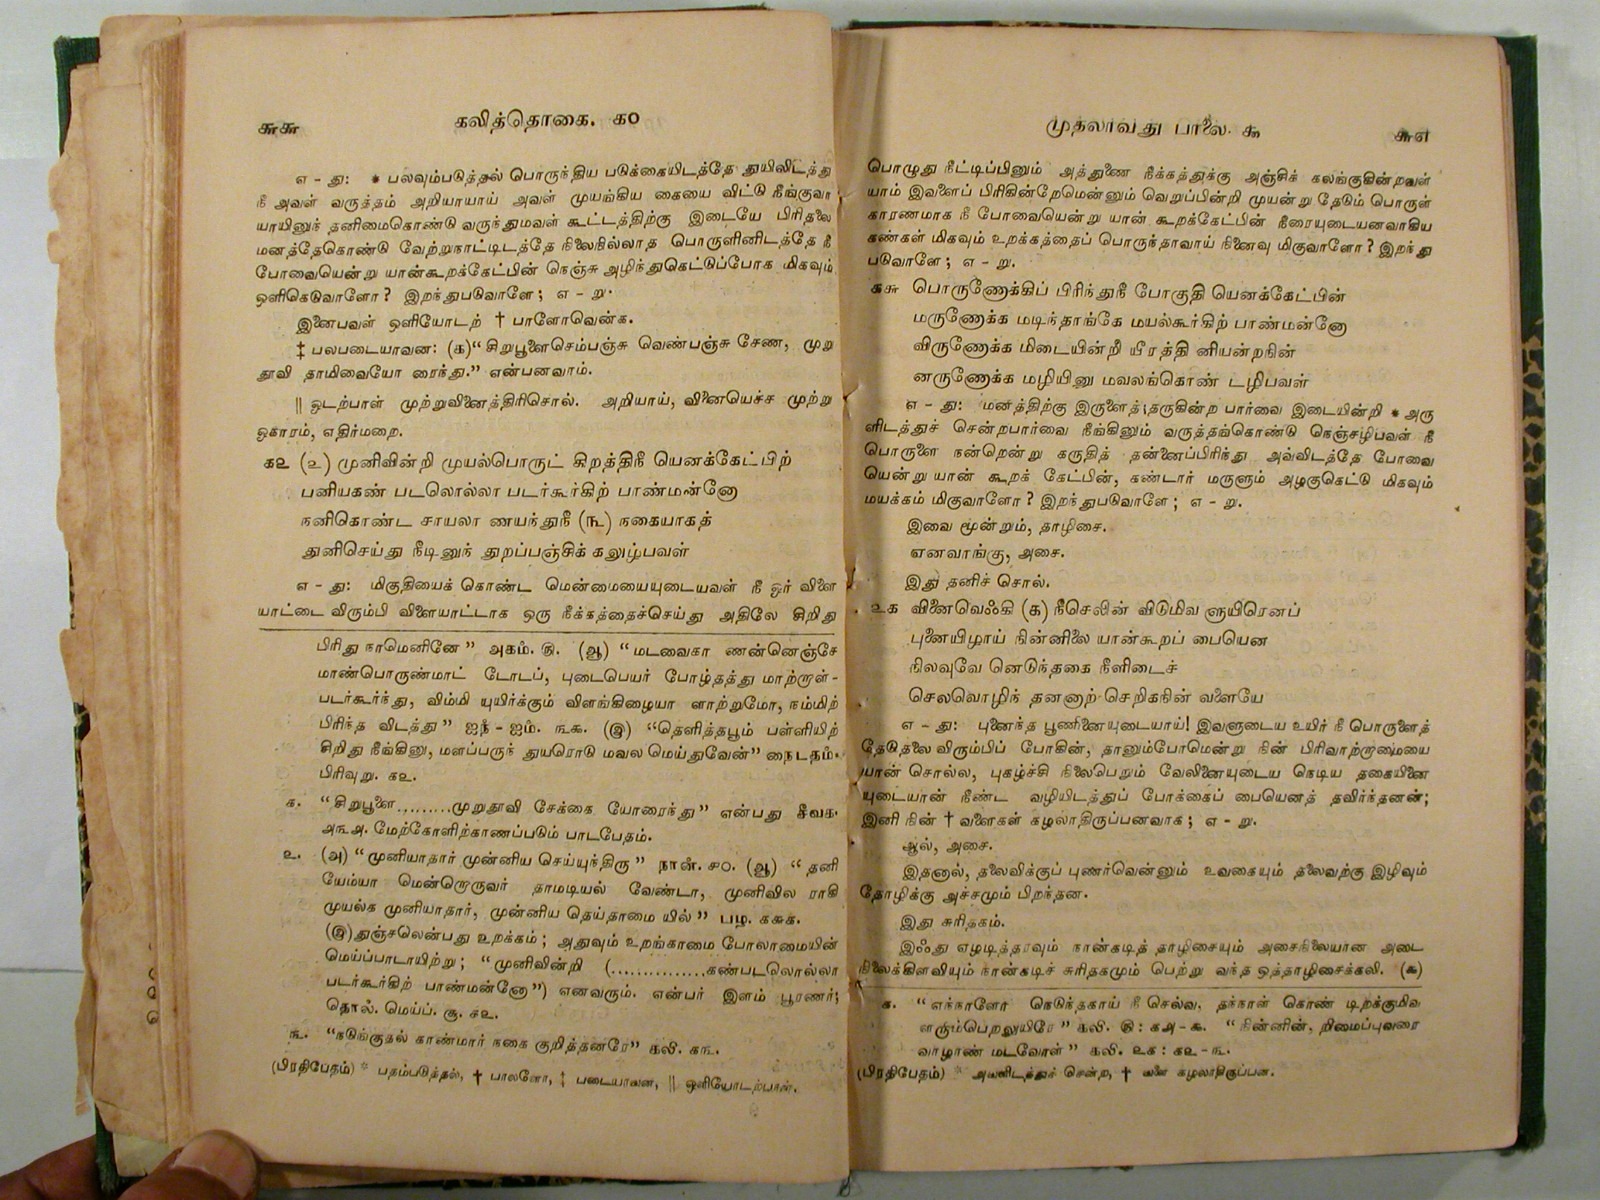 கூகூ
கலித்தொகை. க௦
எ - து: * பலவும்படுத்தல் பொருந்திய படுக்கையிடத்தே துயிலிடத்து
நீ அவள் வருத்தம் அறியாயாய் அவள் முயங்கிய கையை விட்டு நீங்குவா
யாயினுந் தனிமைகொண்டு வருந்துமவள் கூட்டத்திற்கு இடையே பிரிதலை
மனத்தேகொண்டு வேற்றுநாட்டிடத்தே நிலைநில்லாத பொருளினிடத்தே நீ
போவையென்று யான்கூறக்கேட்பின் நெஞ்சு அழிந்துகெட்டுப்போக மிகவும்
ஒளிகெடுவாளோ? இறந்துபடுவாளே; எ - று.
இனைபவள் ஒளியோடற் † பாளோவென்க.
‡ பலபடையாவன: (க) “சிறுபூளைசெம்பஞ்சு வெண்பஞ்சு சேண, முறு
தூவி தாமிவையோ ரைந்து.” என்பனவாம்.
|| ஒடற்பாள் முற்றுவினைத்திரிசொல். அறியாய், வினையெச்ச முற்று
ஒகாரம், எதிர்மறை.
கஉ (உ) முனிவின்றி முயல்பொருட் கிறத்திநீ யெனக்கேட்பிற்
பனியகண் படலொல்லா படர்கூர்கிற் பாண்மன்னோ
நனிகொண்ட சாயலா ணயந்துநீ (௩) நகையாகத்
துனிசெய்து நீடினுந் துறப்பஞ்சிக் கலுழ்பவள்
எ - து: மிகுதியைக் கொண்ட மென்மையையுடையவள் நீ ஓர் விளை
யாட்டை விரும்பி விளையாட்டாக ஒரு நீக்கத்தைச்செய்து அதிலே சிறிது
பிரிது நாமெனினே” அகம். ௫. (ஆ) “மடவைகா ணன்னெஞ்சே
மாண்பொருண்மாட் டோடப், புடைபெயர் போழ்தத்து மாற்றாள்-
படர்கூர்ந்து, விம்மி யுயிர்க்கும் விளங்கிழையா ளாற்றுமோ, நம்மிற்
பிரிந்த விடத்து” ஐந் - ஐம். ௩௬. (இ) “தெளித்தபூம் பள்ளியிற்
சிறிது நீங்கினு, மளப்பருந் துயரொடு மவல மெய்துவேன்” நைடதம்.
பிரிவுறு. கஉ.
க. “சிறுபூளை.........முறுதூவி சேக்கை யோரைந்து” என்பது சீவக.
அ௩அ. மேற்கோளிற்காணப்படும் பாடபேதம்.
உ. (அ) “முனியாதார் முன்னிய செய்யுந்திரு” நான். ௪௦. (ஆ) “தனி
யேம்யா மென்றொருவர் தாமடியல் வேண்டா, முனிவில ராகி
முயல்க முனியாதார், முன்னிய தெய்தாமை யில்” பழ. ககூக.
(இ) துஞ்சலென்பது உறக்கம்; அதுவும் உறங்காமை போலாமையின்
மெய்ப்பாடாயிற்று; “முனிவின்றி (...............கண்படலொல்லா
படர்கூர்கிற் பாண்மன்னோ”) எனவரும். என்பர் இளம் பூரணர்;
தொல். மெய்ப். சூ. ௪உ.
௩. “நடுங்குதல் காண்மார் நகை குறித்தனரே” கலி. க௩.
(பிரதிபேதம்) * பதம்படுத்தல், † பாலனோ, ‡ படையாவன, || ஒளியோடற்பாள்.
முதலாவது பாலை. கூ
கூஎ
பொழுது நீட்டிப்பினும் அத்துணை நீக்கத்துக்கு அஞ்சிக் கலங்குகின்றவள்
யாம் இவளைப் பிரிகின்றேமென்னும் வெறுப்பின்றி முயன்று தேடும் பொருள்
காரணமாக நீ போவையென்று யான் கூறக்கேட்பின் நீரையுடையனவாகிய
கண்கள் மிகவும் உறக்கத்தைப் பொருந்தாவாய் நினைவு மிகுவாளோ? இறந்து
படுவாளே; எ - று.
ககூ பொருணோக்கிப் பிரிந்துநீ போகுதி யெனக்கேட்பின்
மருணோக்க மடிந்தாங்கே மயல்கூர்கிற் பாண்மன்னோ
விருணோக்க மிடையின்றி யீரத்தி னியன்றநின்
னருணோக்க மழியினு மவலங்கொண் டழிபவள்
எ - து: மனத்திற்கு இருளைத் தருகின்ற பார்வை இடையின்றி * அரு
ளிடத்துச் சென்றபார்வை நீங்கினும் வருத்தங்கொண்டு நெஞ்சழிபவள் நீ
பொருளை நன்றென்று கருதித் தன்னைப்பிரிந்து அவ்விடத்தே போவை
யென்று யான் கூறக் கேட்பின், கண்டார் மருளும் அழகுகெட்டு மிகவும்
மயக்கம் மிகுவாளோ? இறந்துபடுவாளே; எ - று.
இவை மூன்றும், தாழிசை.
எனவாங்கு, அசை.
இது தனிச் சொல்.
உக வினைவெஃகி (க) நீசெலின் விடுமிவ ளுயிரெனப்
புனையிழாய் நின்னிலை யான்கூறப் பையென
நிலவுவே னெடுந்தகை நீளிடைச்
செலவொழிந் தனனாற் செறிகநின் வளையே
எ - து: புனைந்த பூணினையுடையாய்! இவளுடைய உயிர் நீ பொருளைத்
தேடுதலை விரும்பிப் போகின், தானும்போமென்று நின் பிரிவாற்றாமையை
யான் சொல்ல, புகழ்ச்சி நிலைபெறும் வேலினையுடைய நெடிய தகையினை
யுடையான் நீண்ட வழியிடத்துப் போக்கைப் பையெனத் தவிர்ந்தனன்;
இனி நின் † வளைகள் கழலாதிருப்பனவாக; எ - று.
ஆல், அசை.
இதனால், தலைவிக்குப் புணர்வென்னும் உவகையும் தலைவற்கு இழிவும்
தோழிக்கு அச்சமும் பிறந்தன.
இது சுரிதகம்.
இஃது எழடித்தரவும் நான்கடித் தாழிசையும் அசைநிலையான அடை
நிலைக்கிளவியும் நான்கடிச் சுரிதகமும் பெற்று வந்த ஒத்தாழிசைக்கலி. (கூ)
க. “எந்நாளோ நெடுந்தகாய் நீ செல்வ, தந்நாள் கொண் டிறக்குமிவ
ளரும்பெறலுயிரே” கலி. ௫: கஅ - கூ. “நின்னின், றிமைப்புவரை
வாழாண் மடவோள்” கலி. உக: கஉ - ௩.
(பிரதிபேதம்) * அவனிடத்துச் சென்ற, † வளை கழலாதிருப்பன.